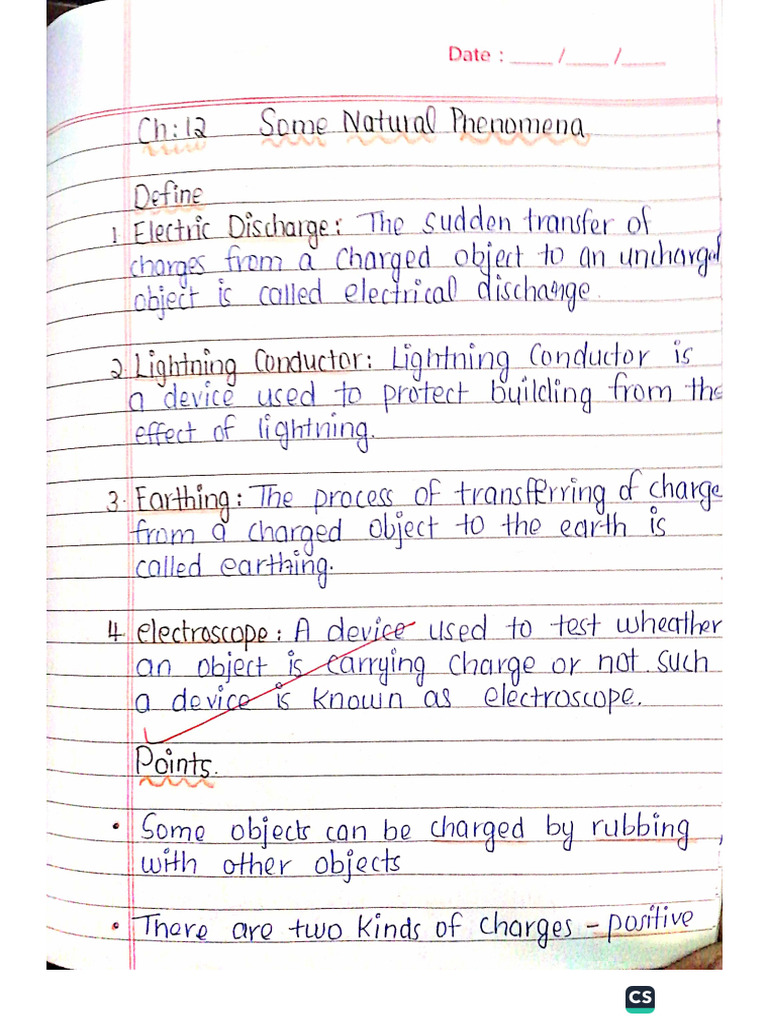 Date : ____/____/____
Ch:12 Some Natural Phenomena
Define
1 Electric Discharge: The sudden transfer of
charges from a charged object to an uncharged
object is called electrical dischange.
2 Lightning Conductor: Lightning Conductor is
a device used to protect building from the
effect of lightning.
3. Earthing: The process of transferring of charge
from a charged object to the earth is
called earthing.
4 electroscope: A device used to test wheather
an object is carrying charge or not such
a device is known as electroscope.
Points.
• Some objects can be charged by rubbing,
with other objects
• There are two kinds of charges - positive
CS